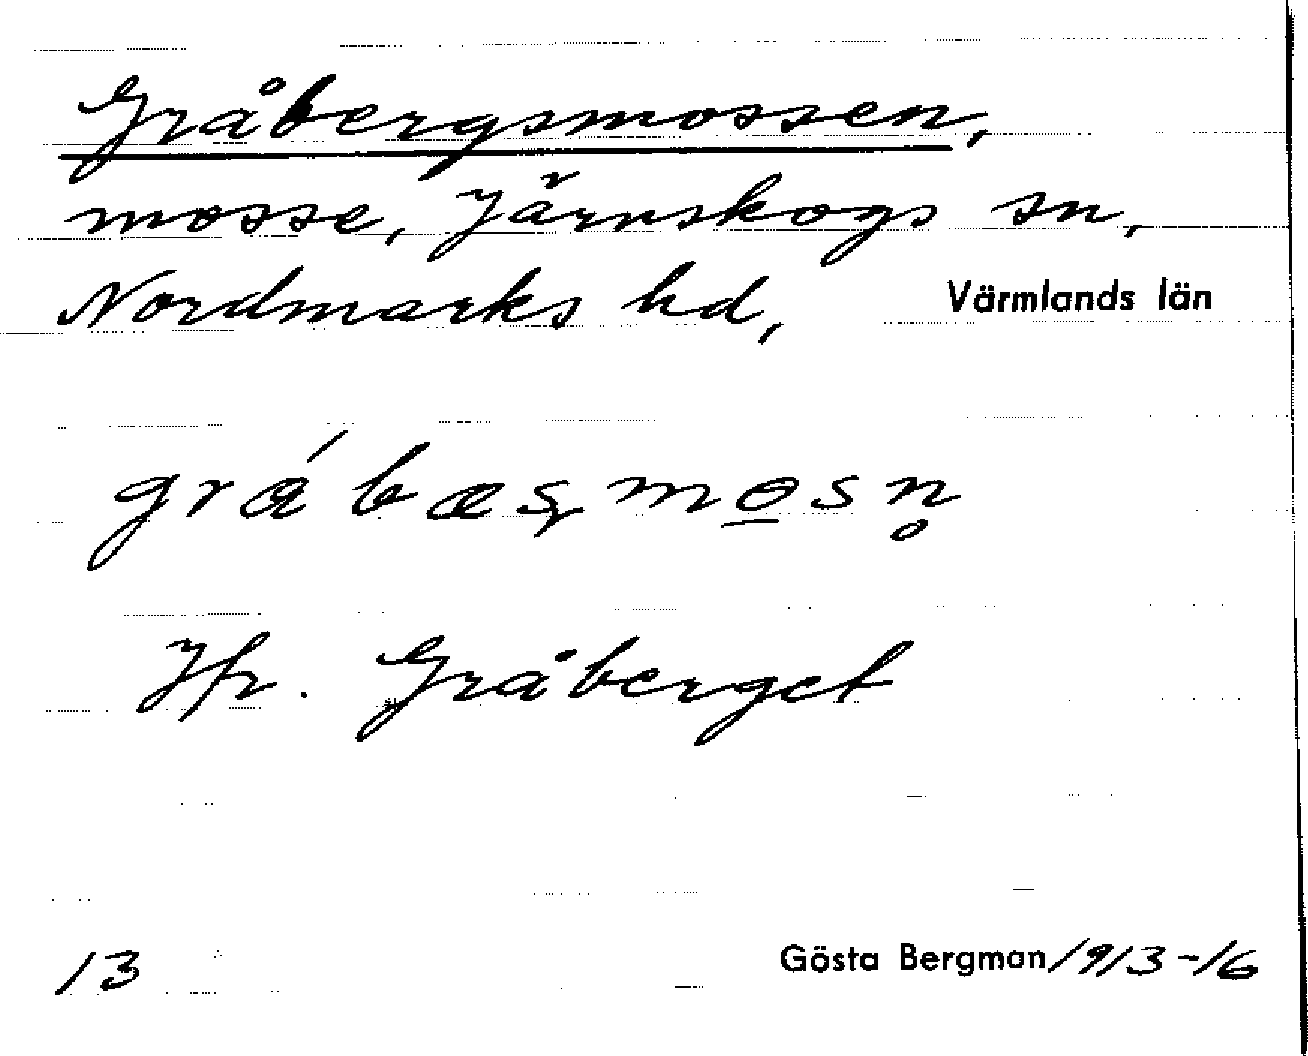 Gråbergsmossen,
mosse, Järnskogs sn,
Nordmarks hd, Värmlands län
grábæʂmo̲sn̥
Jfr. Gråberget
13 Gösta Bergman 1913-16